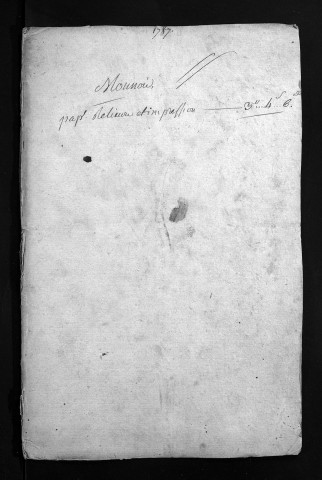 1787.
Monnais
papr Relieure et impression 3tt 4s 6d